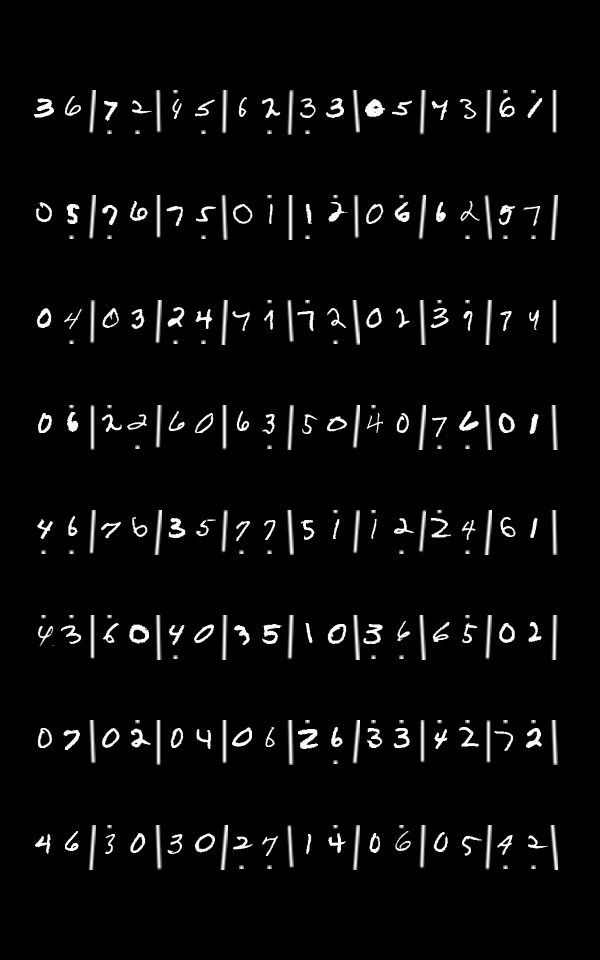 3 6 | 7̣ 2̣ | 4̇ 5̣ | 6 2̣ | 3̣ 3 | 0 5 | 4 3 | 6̇ 1̇ |
0 5̣ | 7̣ 6 | 7 5̣ | 0 1̇ | 1̣ 2̇ | 0 6̇ | 6 2̣ | 5̣ 7̣ |
0 4̣ | 0 3 | 2̣ 4̣ | 7 1̇ | 7̇ 2̣ | 0 2 | 3̇ 7̇ | 7 4 |
0 6̇ | 2̇ 2̣ | 6 0 | 6 3̣ | 5 0 | 4̇ 0 | 7̣ 6̣ | 0 1 |
4̣ 6̣ | 7 6 | 3 5 | 7̣ 7̣ | 5 1̇ | 1̇ 2̣ | 2̇ 4̣ | 6 1 |
4̇ 3̇ | 6̇ 0 | 4̣ 0 | 3 5 | 1 0 | 3̣ 6̣ | 6 5̇ | 0 2 |
0 7 | 0 2̇ | 0 4 | 0 6 | 2̇ 6̣̇ | 3̇ 3̇ | 4̇ 2̇ | 7̇ 2̇ |
4 6 | 3̇ 0 | 3 0 | 2̣ 7̣ | 1 4̇ | 0 6̇ | 0 5 | 4̣ 2̣ |